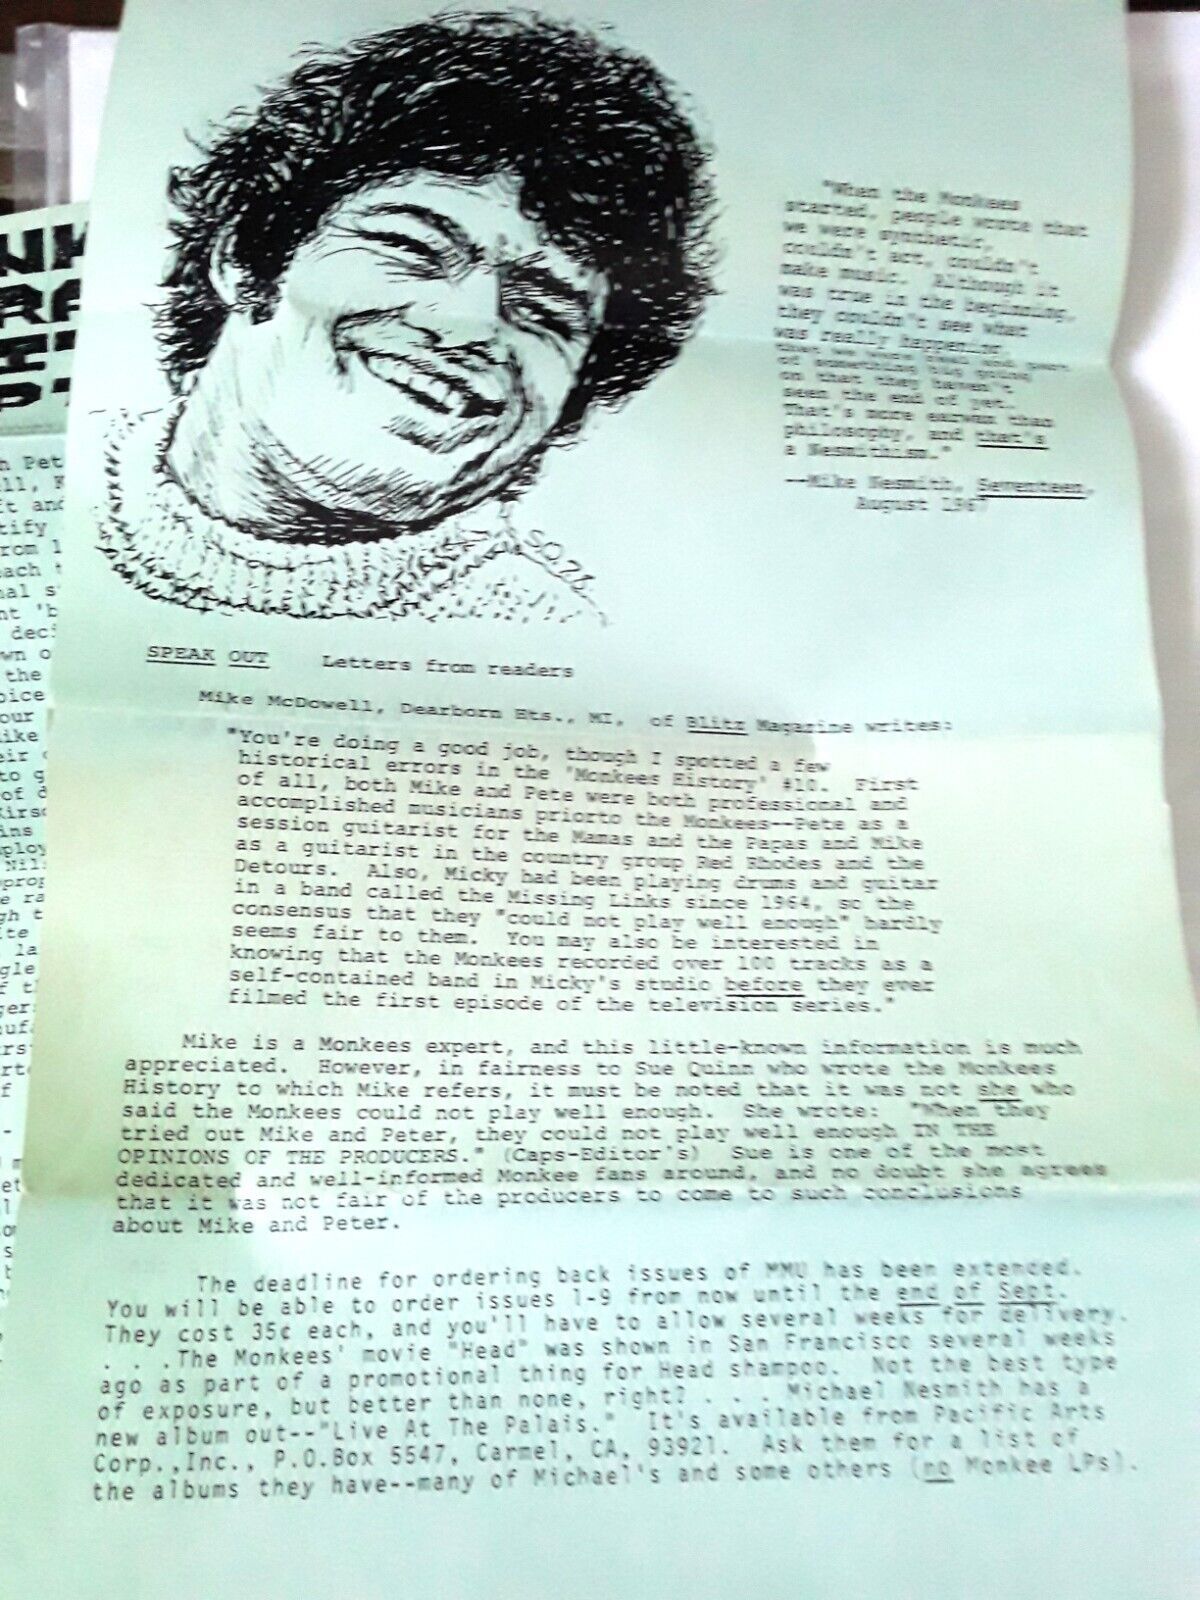 "When the Monkees
started, people wrote that
we were synthetic,
couldn't act, couldn't
make music. Although it
was true in the beginning,
they couldn't see what
was really happening,
of something big going
on that they haven't
seen the end of yet.
That's more earwax than
philosophy, and that's
a Nesmithism."
--Mike Nesmith, Seventeen,
August 1967
S.Q. 78
SPEAK OUT Letters from readers
Mike McDowell, Dearborn Hts., MI, of Blitz Magazine writes:
"You're doing a good job, though I spotted a few
historical errors in the 'Monkees History' #10. First
of all, both Mike and Pete were both professional and
accomplished musicians priorto the Monkees--Pete as a
session guitarist for the Mamas and the Papas and Mike
as a guitarist in the country group Red Rhodes and the
Detours. Also, Micky had been playing drums and guitar
in a band called the Missing Links since 1964, so the
consensus that they "could not play well enough" hardly
seems fair to them. You may also be interested in
knowing that the Monkees recorded over 100 tracks as a
self-contained band in Micky's studio before they ever
filmed the first episode of the television series."
Mike is a Monkees expert, and this little-known information is much
appreciated. However, in fairness to Sue Quinn who wrote the Monkees
History to which Mike refers, it must be noted that it was not she who
said the Monkees could not play well enough. She wrote: "When they
tried out Mike and Peter, they could not play well enough IN THE
OPINIONS OF THE PRODUCERS." (Caps-Editor's) Sue is one of the most
dedicated and well-informed Monkee fans around, and no doubt she agrees
that it was not fair of the producers to come to such conclusions
about Mike and Peter.
The deadline for ordering back issues of MMU has been extended.
You will be able to order issues 1-9 from now until the end of Sept.
They cost 35¢ each, and you'll have to allow several weeks for delivery.
. . .The Monkees' movie "Head" was shown in San Francisco several weeks
ago as part of a promotional thing for Head shampoo. Not the best type
of exposure, but better than none, right? . . . Michael Nesmith has a
new album out--"Live At The Palais." It's available from Pacific Arts
Corp.,Inc., P.O.Box 5547, Carmel, CA, 93921. Ask them for a list of
the albums they have--many of Michael's and some others (no Monkee LPs).